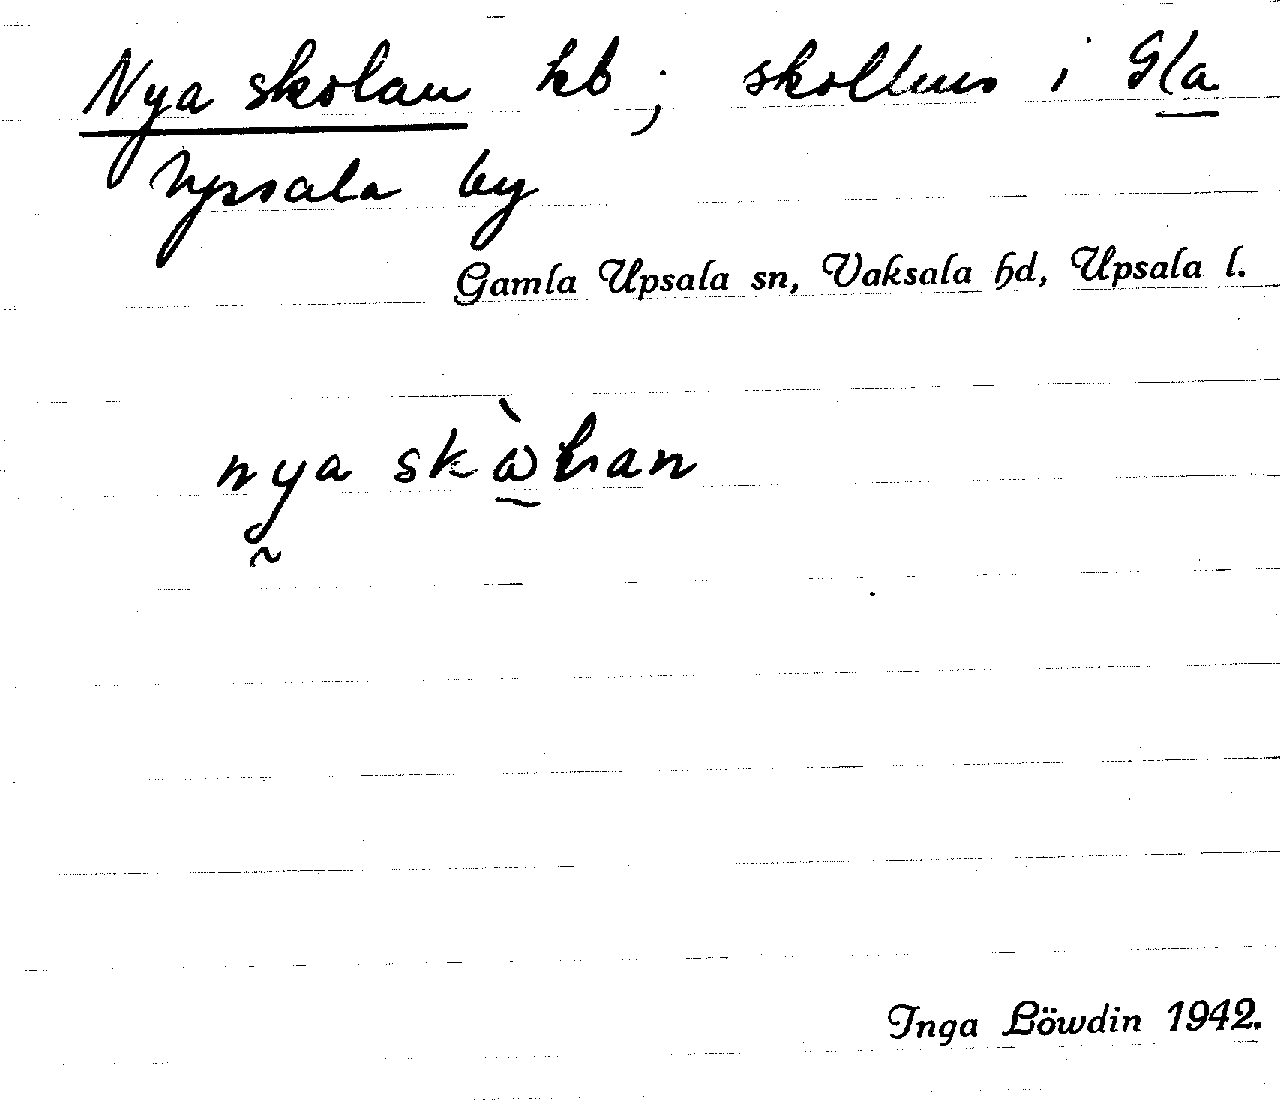 Nya skolan hb; skolhus i Gla
Upsala by
Gamla Upsala sn, Vaksala hd, Upsala l.
nya skὼlan
Inga Löwdin 1942.